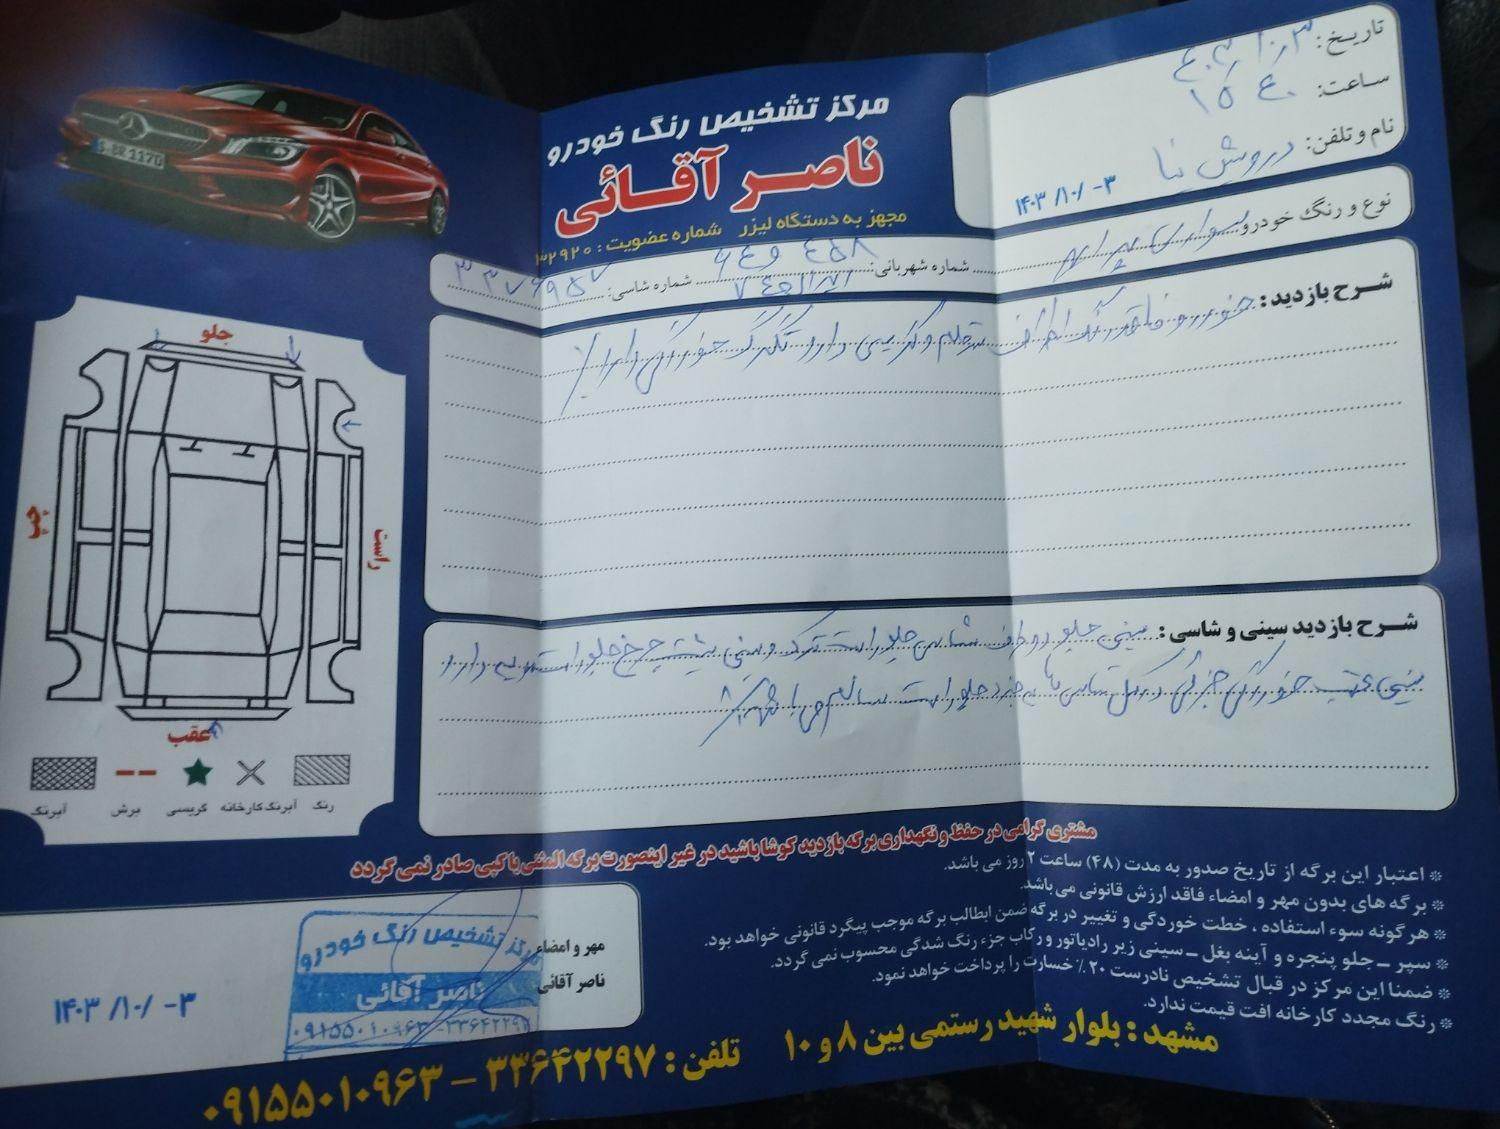 مرکز تشخیص رنگ خودرو
ناصر آقائی
مجهز به دستگاه لیزر شماره عضویت : ۳۲۹۲۰
تاریخ :
ساعت : ۱۵
نام و تلفن : درویش نیا
۱۴۰۳/۱۰/-۳
نوع و رنگ خودرو سواری پراید
شماره شهربانی :
شماره شاسی :
شرح بازدید : خودرو فاقد رنگ
دارد تگرگ خوردگی دارد
شرح بازدید سینی و شاسی : سینی جلو
سینی عقب خوردگی جزئی
جلو
چپ
راست
عقب
رنگ
آبرنگ کارخانه
گریسی
برش
آبرنگ
S·BR 1170
مشتری گرامی در حفظ و نگهداری برگه بازدید کوشا باشید در غیر اینصورت برگه المثنی یا کپی صادر نمی گردد
* اعتبار این برگه از تاریخ صدور به مدت (۴۸) ساعت ۲ روز می باشد.
* برگه های بدون مهر و امضاء فاقد ارزش قانونی می باشد.
* هر گونه سوء استفاده ، خطت خوردگی و تغییر در برگه ضمن ابطالب برگه موجب پیگرد قانونی خواهد بود.
* سپر - جلو پنجره و آینه بغل - سینی زیر رادیاتور و رکاب جزء رنگ شدگی محسوب نمی گردد.
* ضمنا این مرکز در قبال تشخیص نادرست ۲۰٪ خسارت را پرداخت خواهد نمود.
* رنگ مجدد کارخانه افت قیمت ندارد.
مهر و امضاء
ناصر آقائی
مرکز تشخیص رنگ خودرو
ناصر آقائی
۰۹۱۵۵۰۱۰۹۶۳-۳۳۶۴۲۲۹۷
۱۴۰۳/۱۰/-۳
مشهد : بلوار شهید رستمی بین ۸ و ۱۰
تلفن : ۳۳۶۴۲۲۹۷ - ۰۹۱۵۵۰۱۰۹۶۳